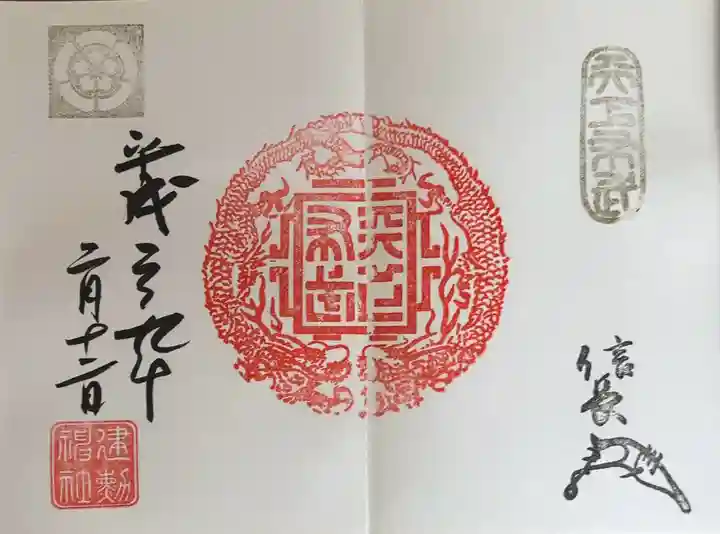 天下布武
信長
天下布武
平成二九年
二月十二日
建勲神社